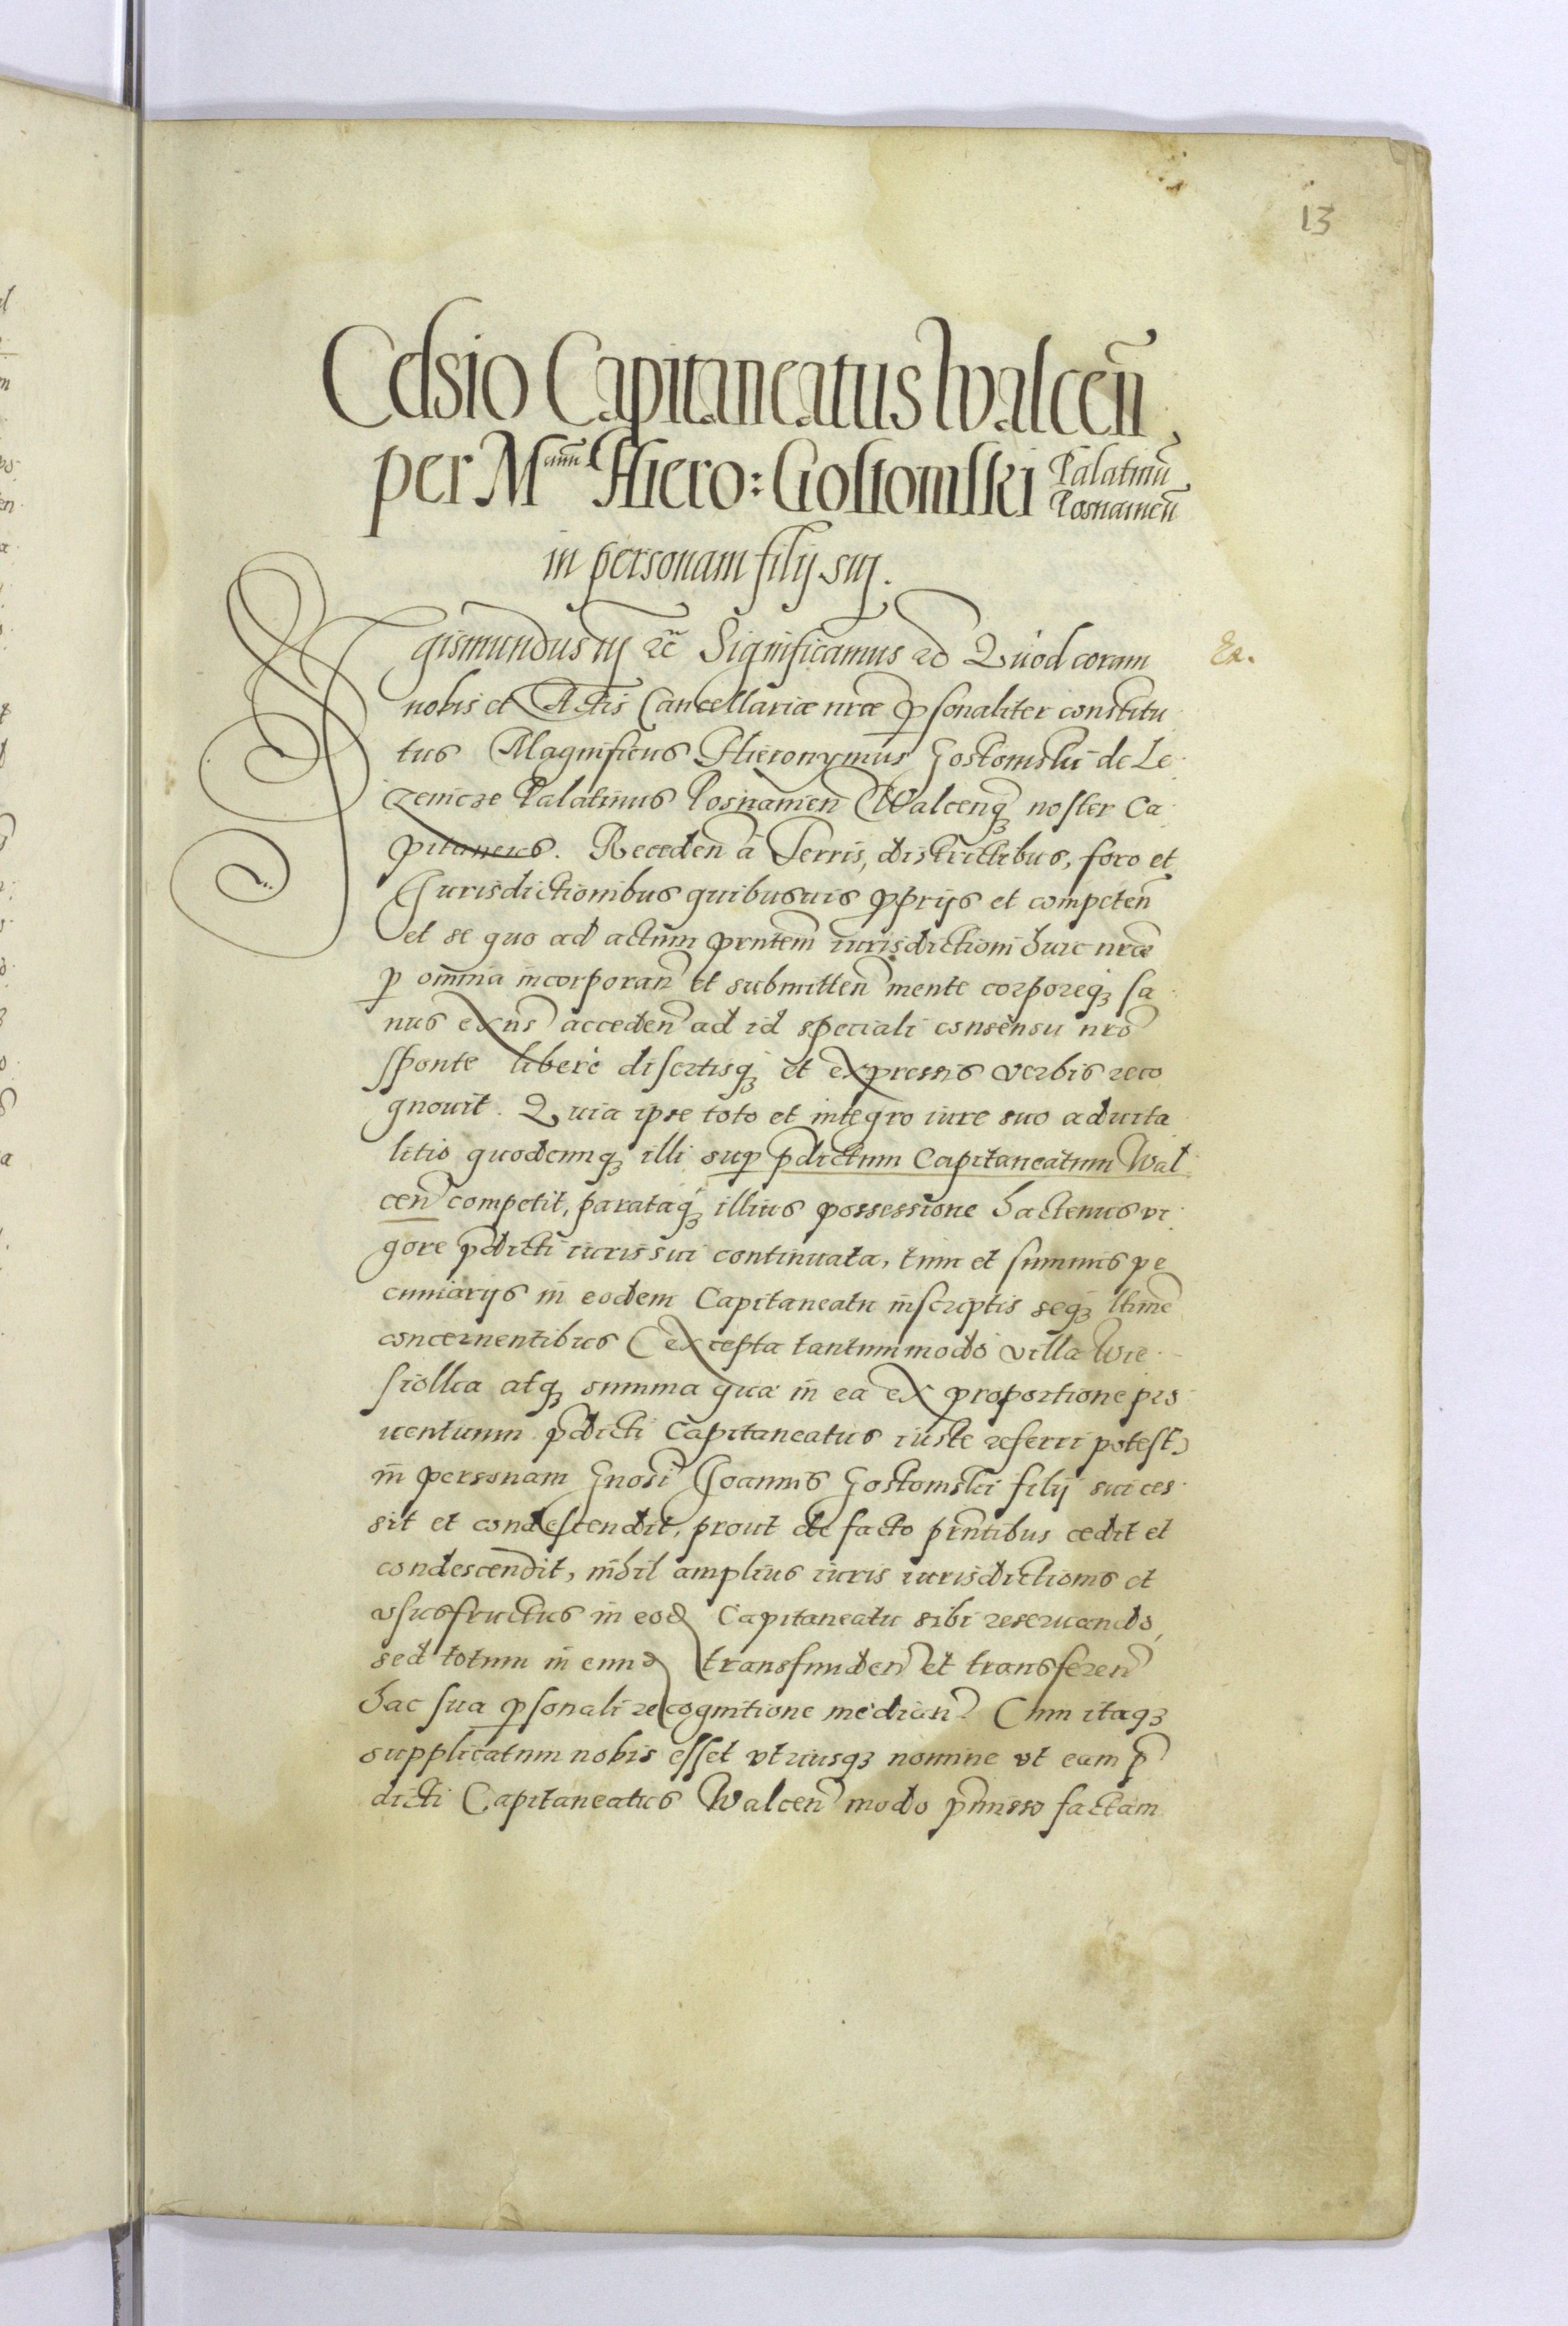 13
Celsio Capitaneatus Walceñ
per M<sup>cum</sup> Hiero: Gostomski Palatinũ Posnanieñ
in personam filij sui.
Sigismundus iij ec̃ Significamus ec Quod coram
nobis et Actis Cancellariæ nr̃æ ꝑsonaliter constitu
tus Magnificus Hieronymus Gostomski de Le
zenicze Palatinus Posnanien̄ Walcenq̨ noster Ca
pitaneus. Receden̄ à Terris, districtibus, foro et
Iurisdictionibus quibusuis ꝓprijs et competen̄
et se quo ad actum pr̃ntem iurisdictioni huic nr̃æ
ꝑ omnia incorporan̄ et submitten̄ mente corporeq̨ sa
nus exñs acceden̄ ad id speciali consensu nr̃o
sponte liberè disertisq̨ et expressis verbis reco
gnouit. Quia ipse toto et integro iure suo aduita
litio quodcunq̨ illi suꝑ p̃dictum Capitaneatum Wal
cen̄ competit, parataq̨ illius possessione hactenus vi
gore p̃dicti iuris sui continuata, tum et summis pe
cuniarijs in eodem Capitaneatu inscriptis seq̨ ltime
concernentibus (excepta tantummodo villa Wie
siolka atq̨ summa quæ in ea ex proportione pro
uentuum p̃dicti Capitaneatus iuste referri potest)
in personam Gnosi Ioannis Gostomski filij sui ces
sit et condescendit, prout de facto pr̃ntibus cedit et
condescendit, nihil amplius iuris iurisdictionis et
vsusfructus in eod Capitaneatu sibi reseruando,
sed totum in eund transfunden̄ et transferen̄
hac sua ꝑsonali recognitione median̄. Cum itaq̨
supplicatum nobis esset vtriusq̨ nomine vt eam p̃
dicti Capitaneatus Walcen̄ modo p̃misso factam